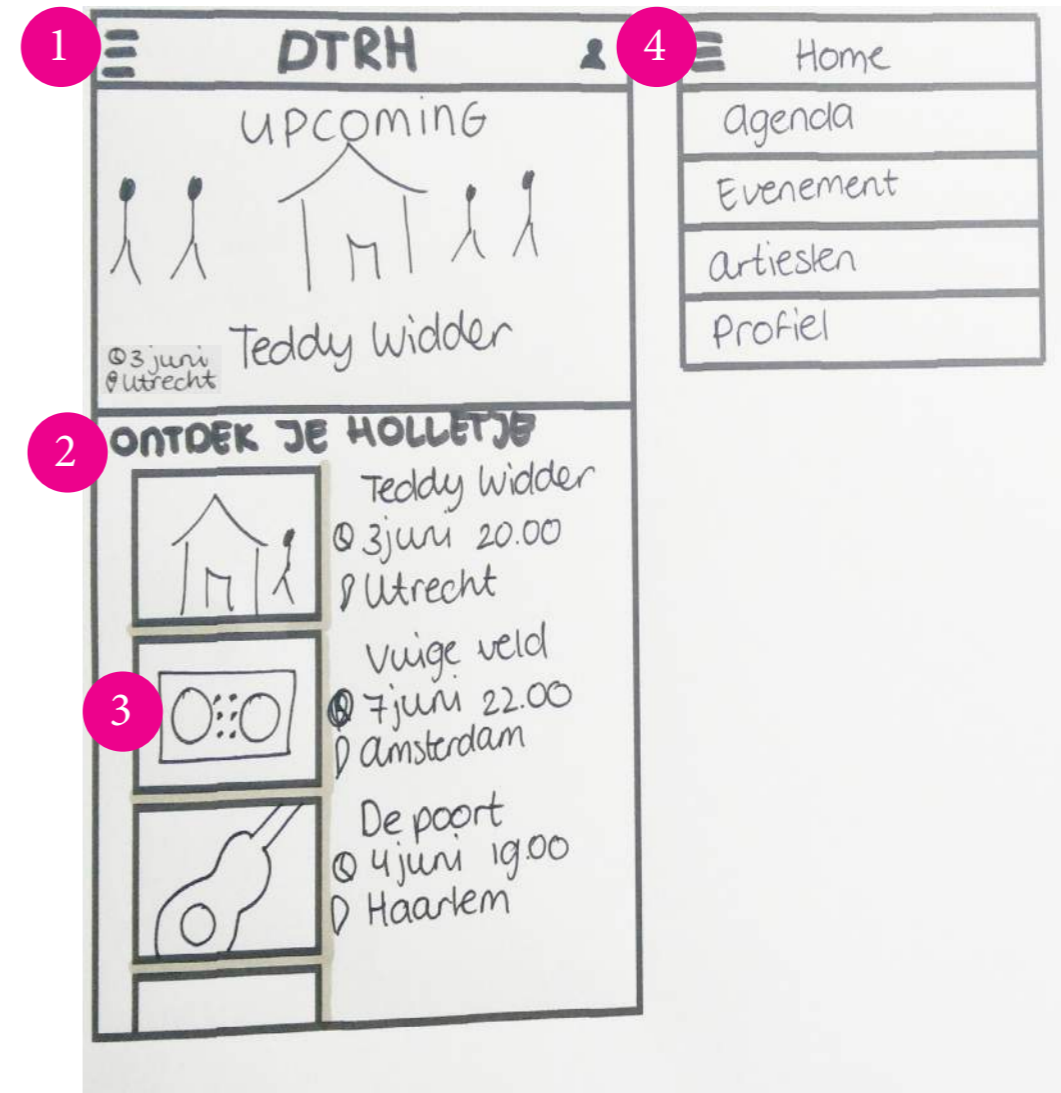 1
DTRH
UPCOMING
Teddy Widder
3 juni
Utrecht
2
ONTDEK JE HOLLETJE
Teddy Widder
3 juni 20.00
Utrecht
3
Vuige veld
7 juni 22.00
Amsterdam
De poort
4 juni 19.00
Haarlem
4
Home
agenda
Evenement
artiesten
Profiel